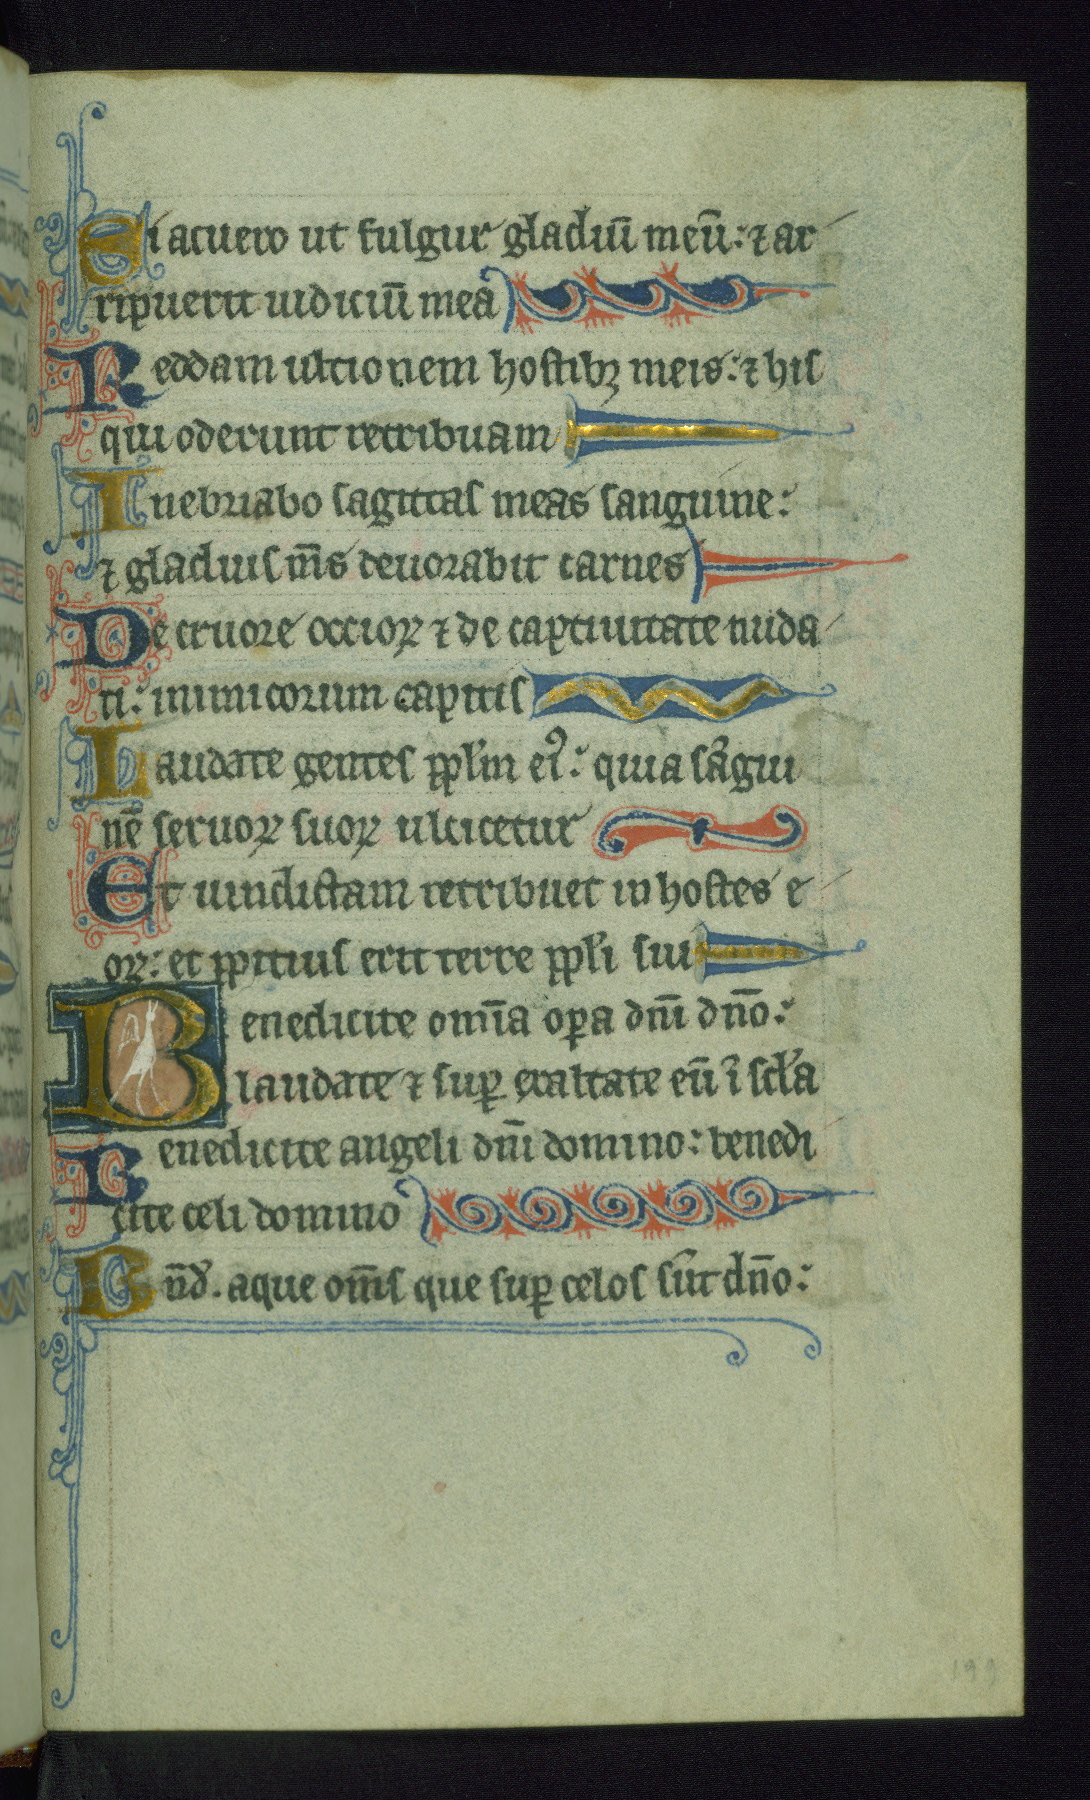 Si acuero ut fulgur gladiū meū: ⁊ ar
ripuerit iudiciū mea
Reddam ultionem hostibꝫ meis: ⁊ his
qui oderunt retribuam
Inebriabo sagittas meas sanguine:
⁊ gladius m̄s deuorabit carnes
De cruore occioꝝ ⁊ de captiuitate nuda
ti: inimicorum capitis
Laudate gentes ppl̄m eiꝰ: quia sāgui
nē seruoꝝ suoꝝ ulcicetur
Et uindictam retribuet in hostes e
oꝝ: et ꝓpitius erit terre ppl̄i sui
Benedicite om̄ia oꝑa dn̄i dn̄o:
laudate ⁊ suꝑ exaltate eū ī scl̄a
Benedicite angeli dn̄i domino: benedi
cite celi domino
Bn̄d. aque om̄s que suꝑ celos sūt dn̄o:
199